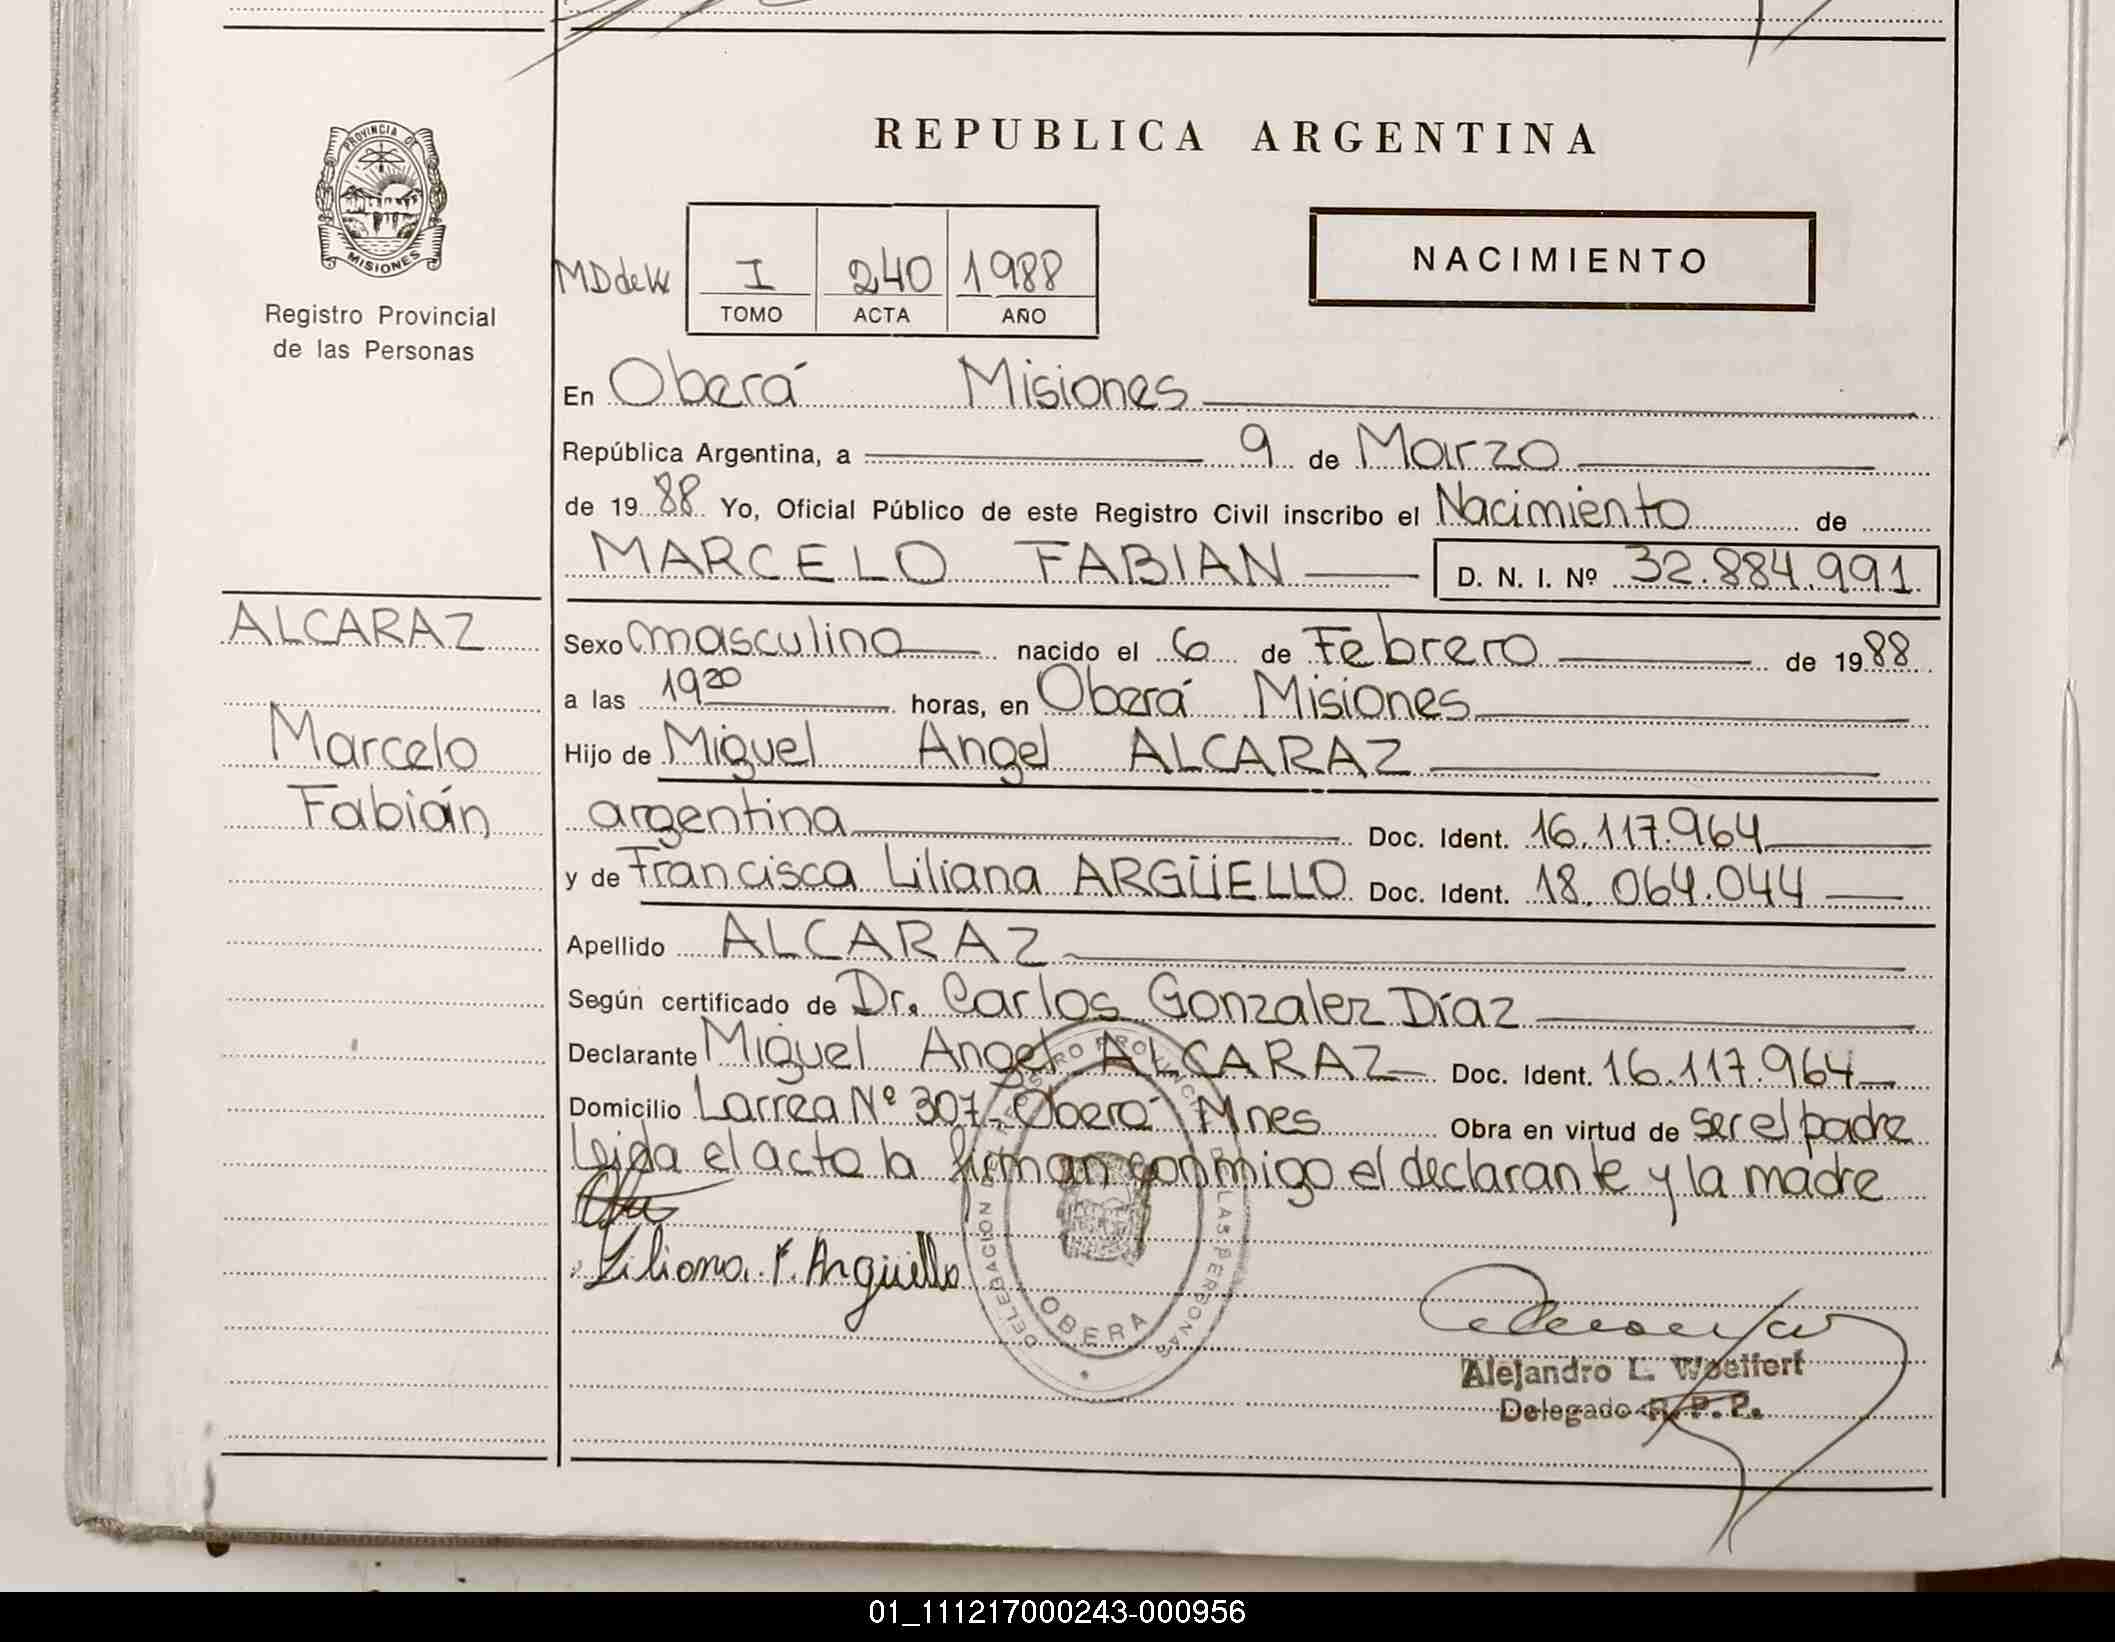 PROVINCIA DE
MISIONES
Registro Provincial
de las Personas
REPUBLICA ARGENTINA
NACIMIENTO
MDdeW
I 240 1988
TOMO ACTA AÑO
En Oberá Misiones
República Argentina, a 9 de Marzo
de 1988 Yo, Oficial Público de este Registro Civil inscribo el Nacimiento de
MARCELO FABIAN D. N. I. Nº 32.884.991
ALCARAZ
Marcelo
Fabián
Sexo masculino nacido el 6 de Febrero de 1988
a las 1920 horas, en Oberá Misiones
Hijo de Miguel Angel ALCARAZ
argentina Doc. Ident. 16.117.964
y de Francisca Liliana ARGÜELLO Doc. Ident. 18.064.044
Apellido ALCARAZ
Según certificado de Dr. Carlos Gonzalez Díaz
Declarante Miguel Angel ALCARAZ Doc. Ident. 16.117.964
Domicilio Larrea Nº 307- Oberá Mnes Obra en virtud de ser el padre
Leida el acto la firman conmigo el declarante y la madre
Liliana F. Argüello
DELEGACION DEL REGISTRO PROVINCIAL DE LAS PERSONAS
OBERA
Alejandro L. Woelfert
Delegado R.P.P.
01_111217000243-000956